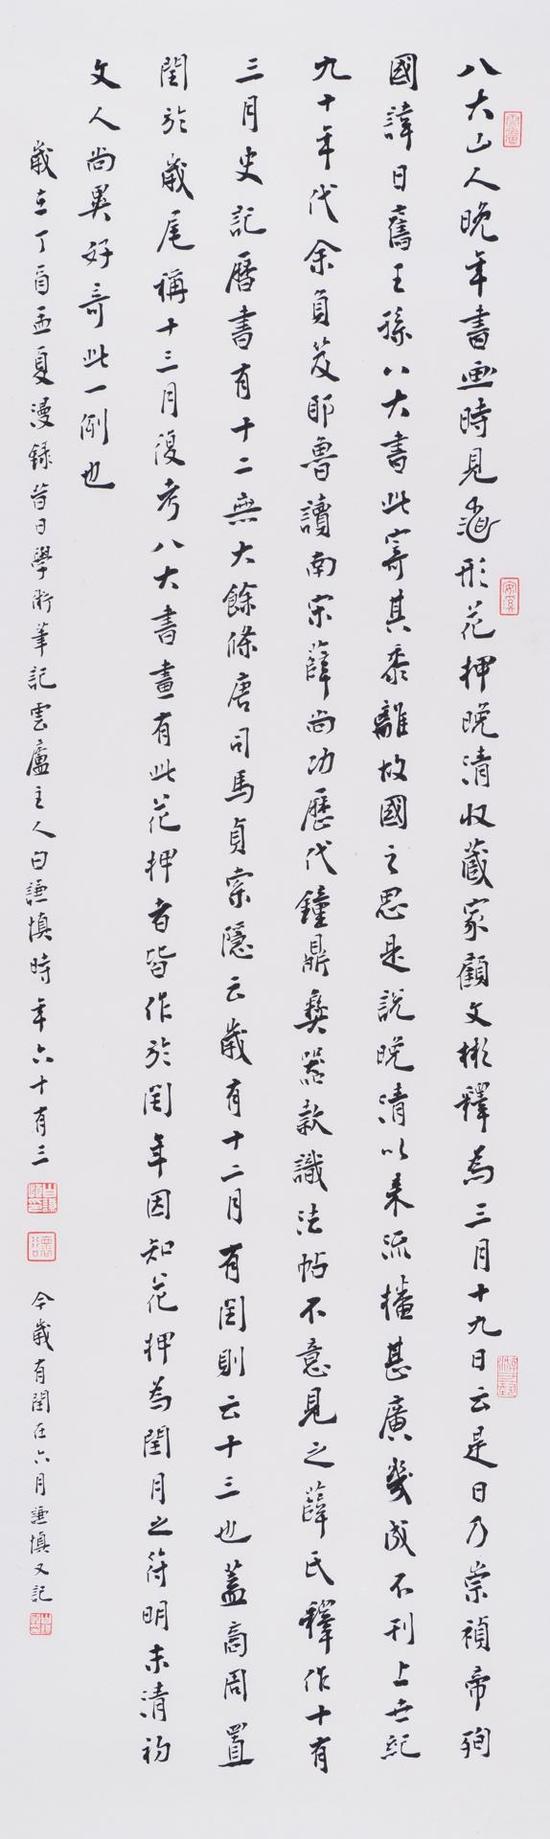 八大山人晚年書画時見形花押晚清收蔵家顧文彬釋為三月十九日云是日乃崇禎帝殉
國諱日舊王孫八大書此寄其黍離故國之思是説晚清以来流播甚廣幾成不刊上世紀
九十年代余負笈耶魯讀南宋薛尚功歷代鐘鼎彝器款識法帖不意見之薛氏釋作十有
三月史記曆書有十二無大餘條唐司馬貞索隱云歲有十二月有閏則云十三也蓋商周置
閏於歲尾稱十三月復考八大書畫有此花押者皆作於閏年因知花押為閏月之符明末清初
文人尚異好奇此一例也
歲在丁酉孟夏漫録昔日學術筆記雲廬主人白謙慎時年六十有三
今歲有閏在六月謙慎又記